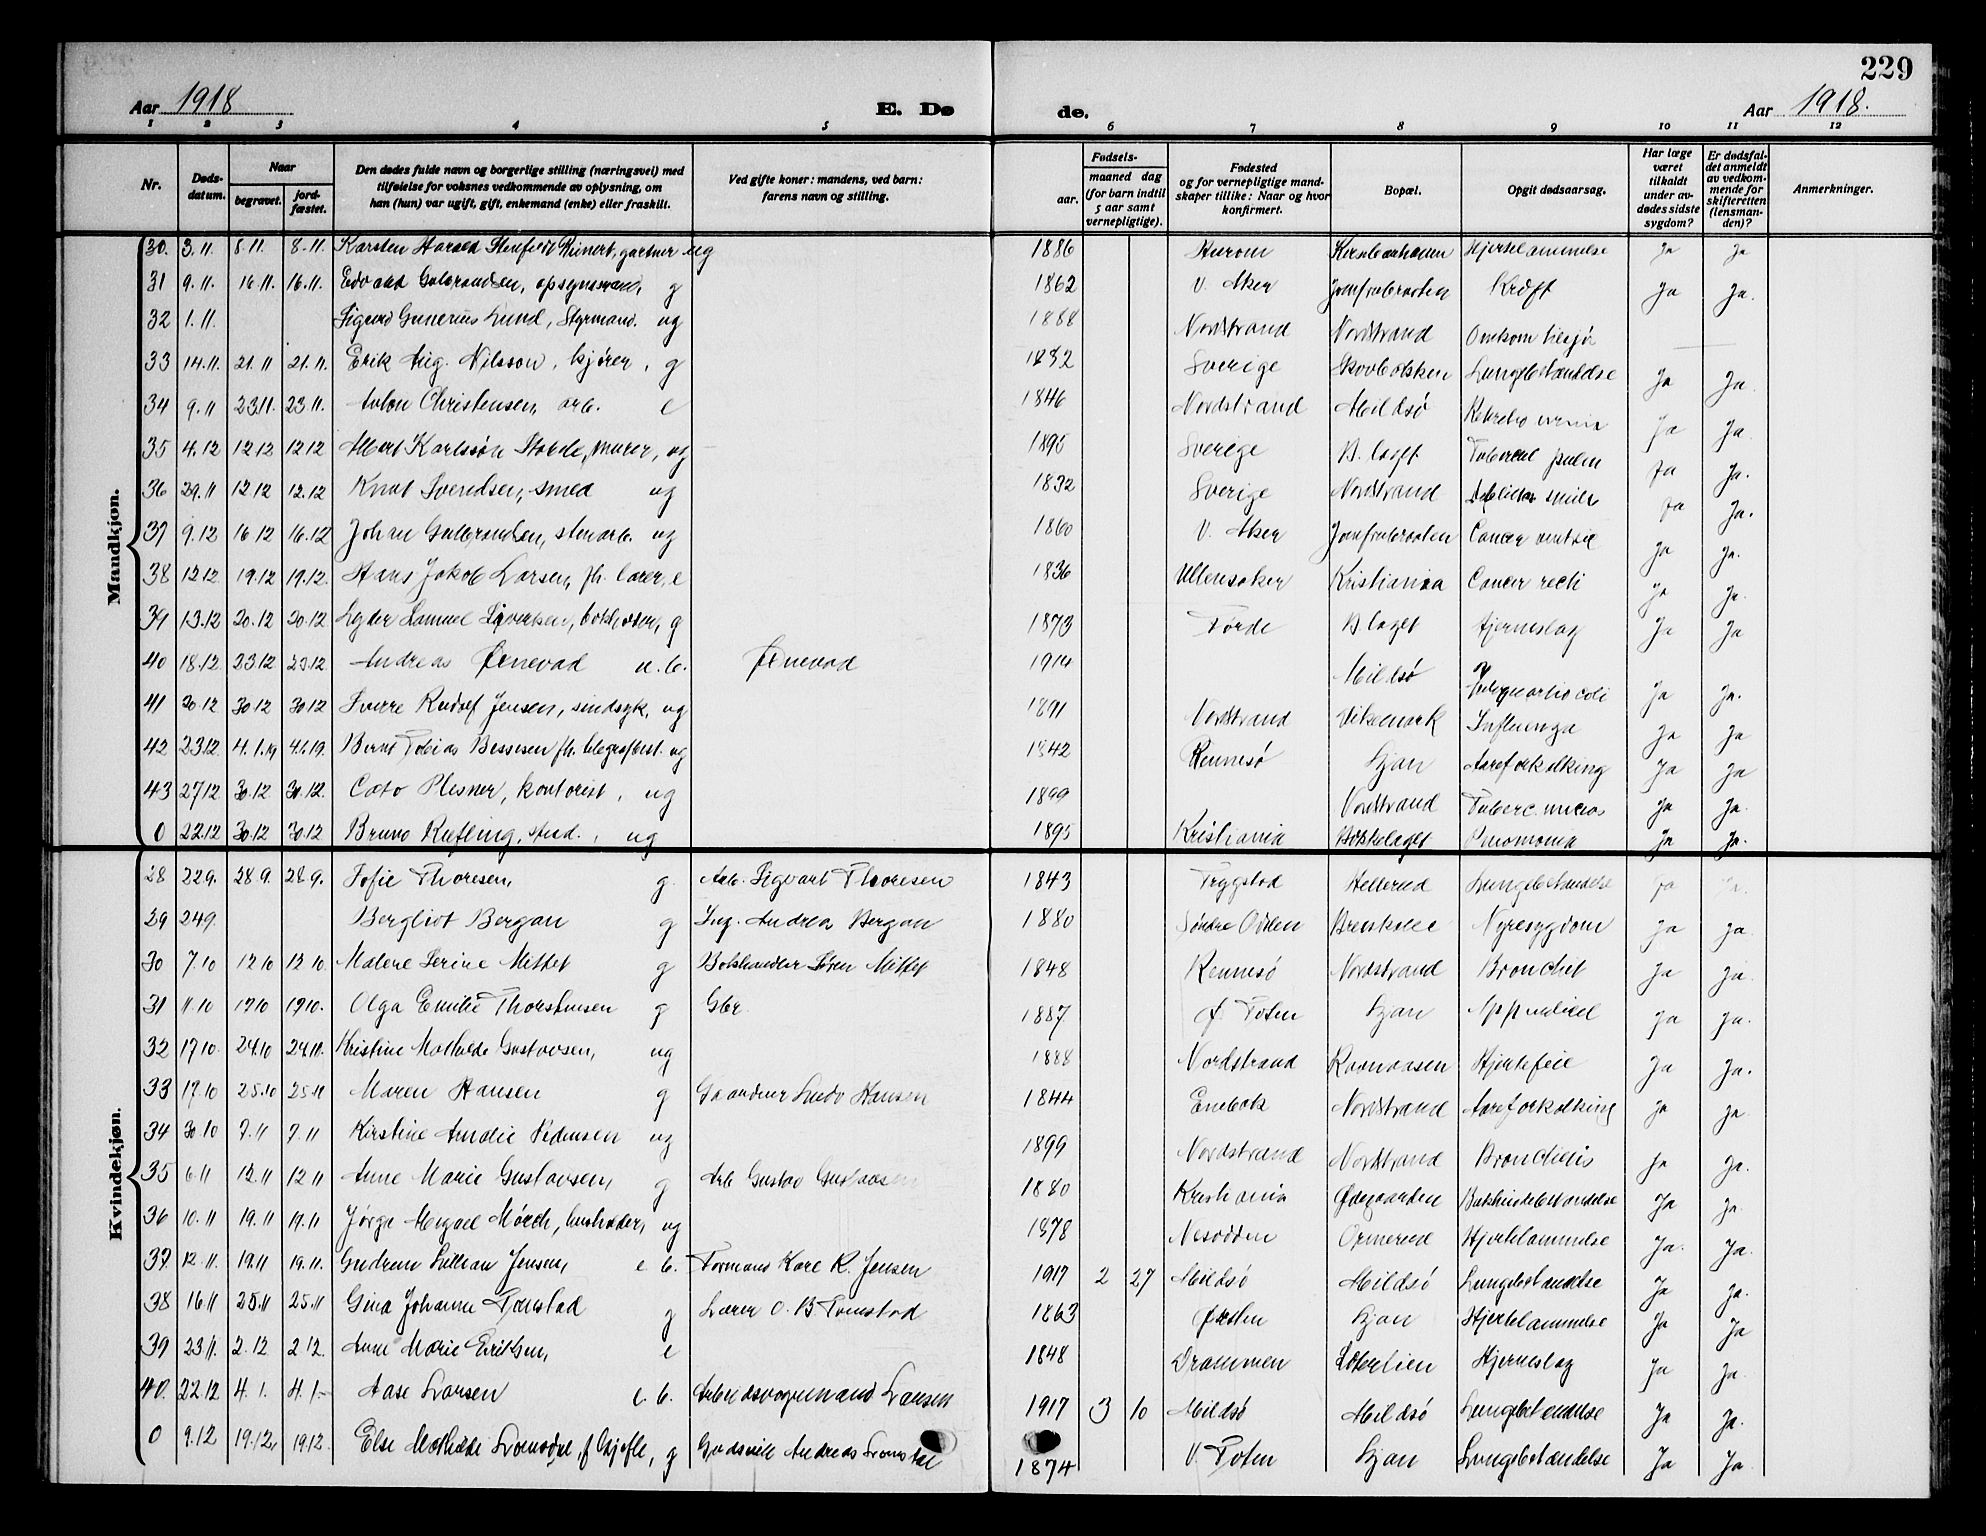 229
Aar 1918 E. Dø de. Aar 1918.
1 2 3 4 5 6 7 8 9 10 11 12
Nr. Døds-datum. Naar begravet. jord-fæstet. Den dødes fulde navn og borgerlige stilling (næringsvei) med tilføielse for voksnes vedkommende av oplysning, om han (hun) var ugift, gift, enkemand (enke) eller fraskilt. Ved gifte koner: mandens, ved barn: farens navn og stilling. Fødsels- aar. maaned dag (for barn indtil 5 aar samt vernepligtige). Fødested og for vernepligtige mand-skaper tillike: Naar og hvor konfirmert. Bopæl. Opgit dødsaarsag. Har læge været tilkaldt under av-dødes sidste sygdom? Er dødsfal-det anmeldt av vedkom-mende for skifteretten (lensman-den)? Anmerkninger.
Mandkjøn.
30. 3.11. 8.11. 8.11. Karsten Harald gartner ug 1886 Hurom Hjertelammelse Ja Ja
31 9.11. 16.11. 16.11. Edvard Gulbrandsen, opsynsmand, g 1862 V. Aker Jomfrubraaten Kræft Ja Ja.
32 1.11. Sigurd Gunerius Lund, Styrmand. ug 1888 Nordstrand Nordstrand Omkom tilsjø
33 14.11. 21.11 21.11. Erik Aug. Nilsson, kjører, g 1832 Sverige Lungebetændelse Ja Ja.
34 9.11 23.11. 23.11. Anton Christensen, arb. e 1846 Nordstrand Mildsø Ja Ja
35 4.12 12.12 12.12 Albert Karlssøn murer, ug 1895 Sverige B. laget Tubercul pulm Ja Ja.
36 29.11 12.12 12.12 Knut Svendsen, smed ug 1832 Sverige Nordstrand Ja Ja.
37 9.12 16.12 16.12 Johan Gulbrandsen, stenarb. ug 1860 V. Aker Jomfrubraaten Cancer ventric Ja Ja.
38 12.12 19.12 19.12. Hans Jakob Larsen, fh. lærer, e 1836 Ullensaker Kristiania Cancer recti Ja Ja.
39 13.12 20.12 20.12 Lyder Samuel Sivertsen, g 1873 Førde B. laget Hjerneslag Ja Ja
40 18.12 23.12 23.12 Andreas Ørnevad u.b. Ørnevad 1914 Mildsø Ja Ja.
41 20.12 30.12 30.12 Sverre Rudolf Jensen, sindsyk, ug 1891 Nordstrand Vikemark Influenza Ja Ja
42 23.12 4.1.19 4.1.19. Bernt Tobias Bessesen fh. telegrafbest. ug 1842 Rennesø Ljan Aareforkalkning Ja Ja
43 27.12 30.12 30.12. Cato Plesner, kontorist, ug 1899 Nordstrand Ja Ja.
0 22.12 30.12 30.12 Bruno Riefling, stud., ug 1895 Kristiania Bekkelaget Pneumonia Ja Ja.
Kvindekjøn.
28 22.9. 28.9. 28.9. Sofie Thoresen, g. Arb. Sigvart Thoresen 1843 Trygstad Hellerud Lungebetændelse Ja Ja.
29 24.9. Bergliot Bergan g Ing. Andreas Bergan 1880 Søndre Odalen Nyresygdom Ja Ja
30 7.10 12.10 12.10. Malene Serine Mettet g Bokhandler Søren Mittet 1848 Rennesø Nordstrand Bronchit Ja Ja.
31 11.10 17.10 17.10. Olga Emilie Thorstensen g Gbr. 1887 Ø. Toten Ljan Appendicit Ja Ja.
32 17.10. 24.10 24.11. Kristine Mathilde Gustavsen, ug 1888 Nordstrand Ravnaasen Hjertefeil Ja Ja.
33 17.10 25.10 25.11 Maren Hansen g Gaardbr Ludv Hansen 1844 Enebak Nordstrand Aareforkalkning Ja Ja
34 30.10 7.11 7.11 Kirstine Amalie Pedersen ug 1899 Nordstrand Nordstrand Bronchitis Ja Ja.
35 6.11 12.11 12.11 Anne Marie Gustavsen, g Arb Gustav Gustavsen 1880 Kristiania Ødegaarden Ja Ja.
36 10.11 19.11 19.11 Mørch, husholder, ug 1878 Nesodden Ormerud Hjertelammelse Ja. Ja.
37 12.11. 19.11 19.11. Gudrun Lillian Jensen, e.b. Formand Karl R. Jensen 1917 2 27 Mildsø Mildsø Lungebetændelse Ja Ja.
38 16.11 25.11 25.11 Gina Johanne Tomstad g Lærer O. B. Tomstad 1863 Ljan Hjertelammelse Ja Ja
39 23.11. 2.12 2.12. Anne Marie Eriksen, e 1848 Drammen Hjerneslag Ja Ja.
40. 22.12 4.1. 4.1.- Aase Larsen e.b. Larsen 1917 3 10 Mildsø Mildsø Lungebetændelse Ja Ja.
0 9.12 19.12, 19.12. Else Mathilde g Andreas 1874 V. Toten Ljan Lungebetændelse Ja Ja.